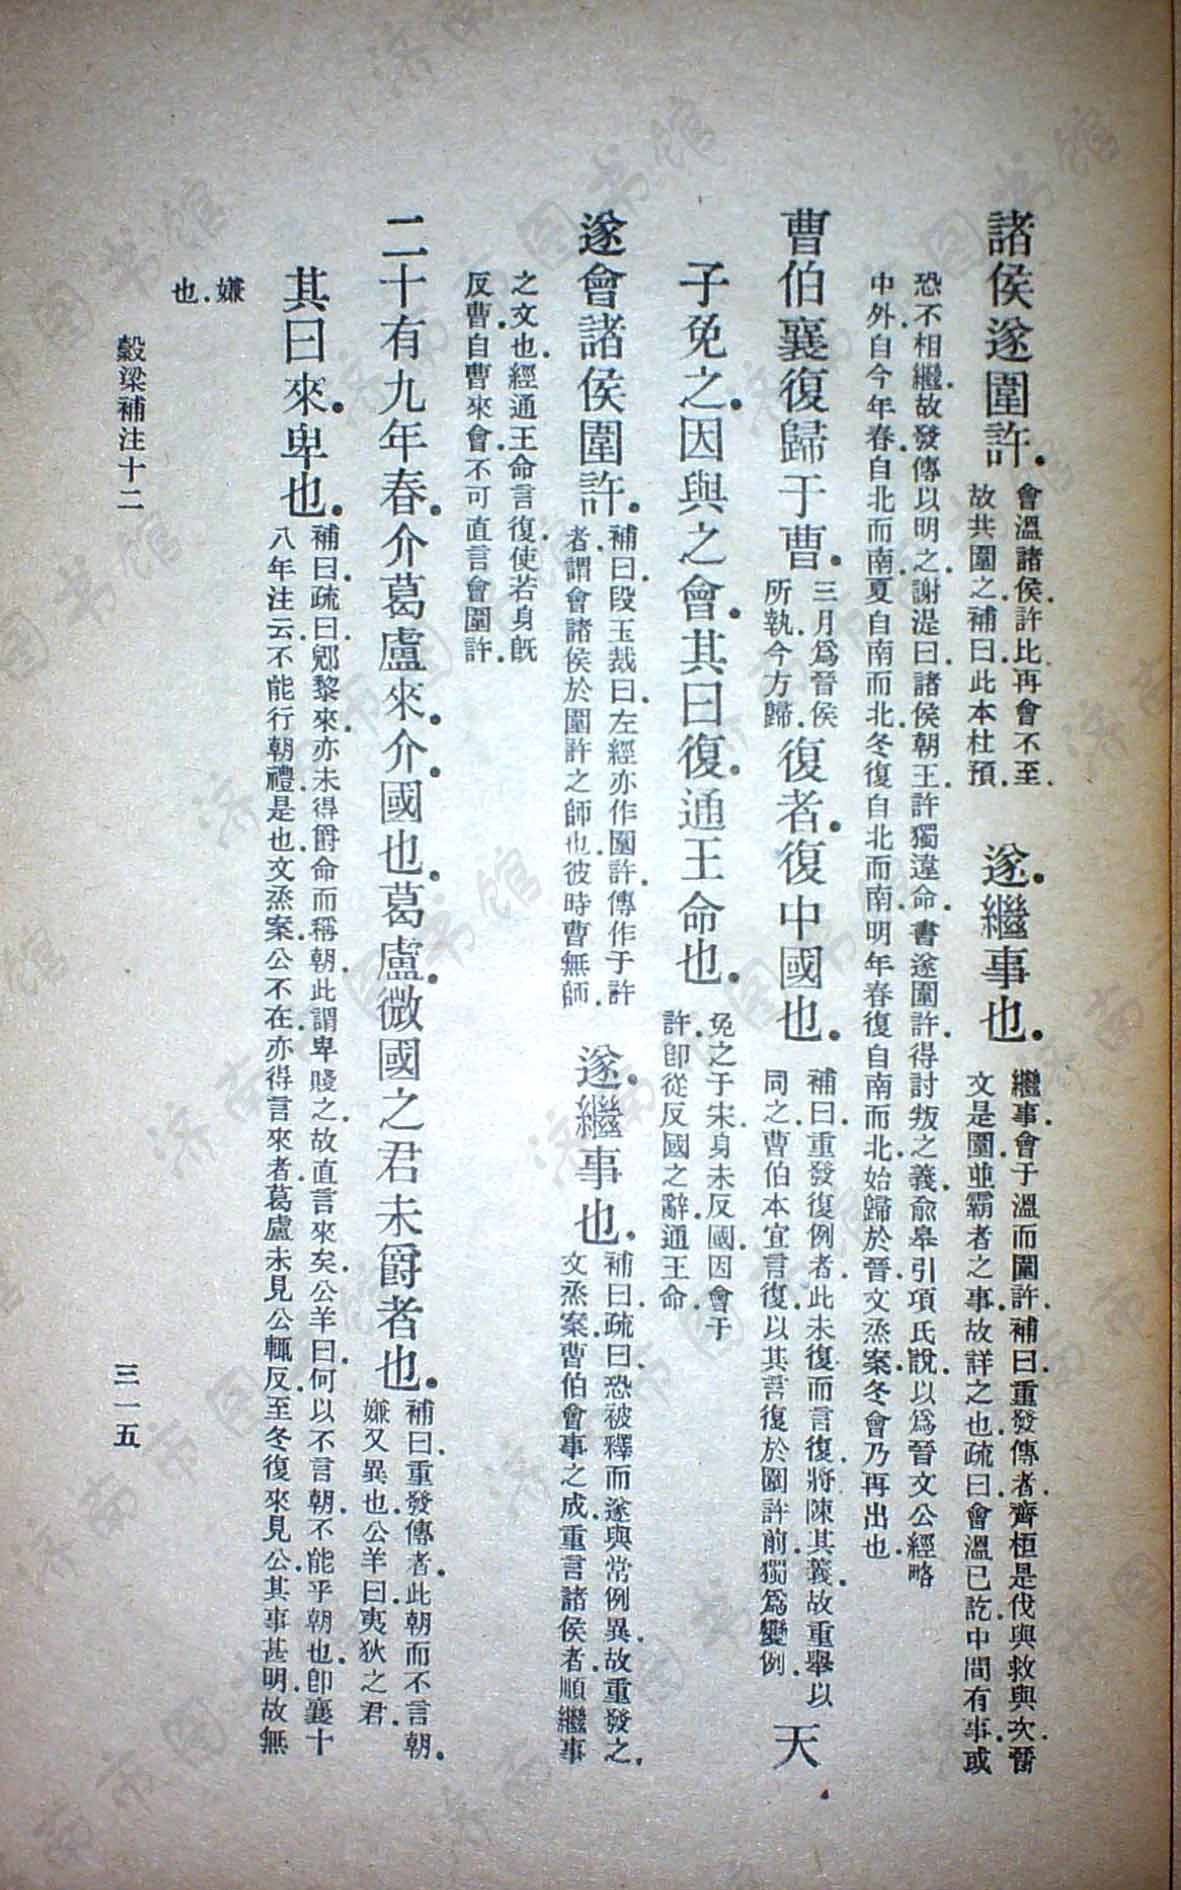 諸侯遂圍許。會溫諸侯許比再會不至。
故共圍之補曰此本杜預。
遂。繼事也。繼事會于溫而圍許補曰重發傳者齊桓是伐與救與次晉
文是圍並霸者之事故詳之也疏曰會溫已訖中間有事或
恐不相繼故發傳以明之謝湜曰諸侯朝王許獨違命書遂圍許得討叛之義俞皋引項氏說以爲晉文公經略
中外自今年春自北而南夏自南而北冬復自北而南明年春復自南而北始歸於晉文烝案冬會乃再出也
曹伯襄復歸于曹。三月爲晉侯
所執今方歸。
復者。復中國也。補曰重發復例者此未復而言復將陳其義故重舉以
同之曹伯本宜言復以其言復於圍許前獨爲變例。
天
子免之。因與之會。其曰復。通王命也。免之于宋身未反國因會于
許卽從反國之辭通王命。
遂會諸侯圍許。補曰段玉裁曰左經亦作圍許傳作于許
者謂會諸侯於圍許之師也彼時曹無師。
遂。繼事也。補曰疏曰恐被釋而遂與常例異故重發之
文烝案曹伯會事之成重言諸侯者順繼事
之文也經通王命言復使若身旣
反曹自曹來會不可直言會圍許。
二十有九年春。介葛盧來。介國也。葛盧。微國之君未爵者也。補曰重發傳者此朝而不言朝。
嫌又異也公羊曰夷狄之君。
其曰來。卑也。補曰疏曰郳黎來亦未得爵命而稱朝此謂卑賤之故直言來矣公羊曰何以不言朝不能乎朝也卽襄十
八年注云不能行朝禮是也文烝案公不在亦得言來者葛盧未見公輒反至冬復來見公其事甚明故無
嫌
也。
穀梁補注十二
三一五
濟南市图书馆